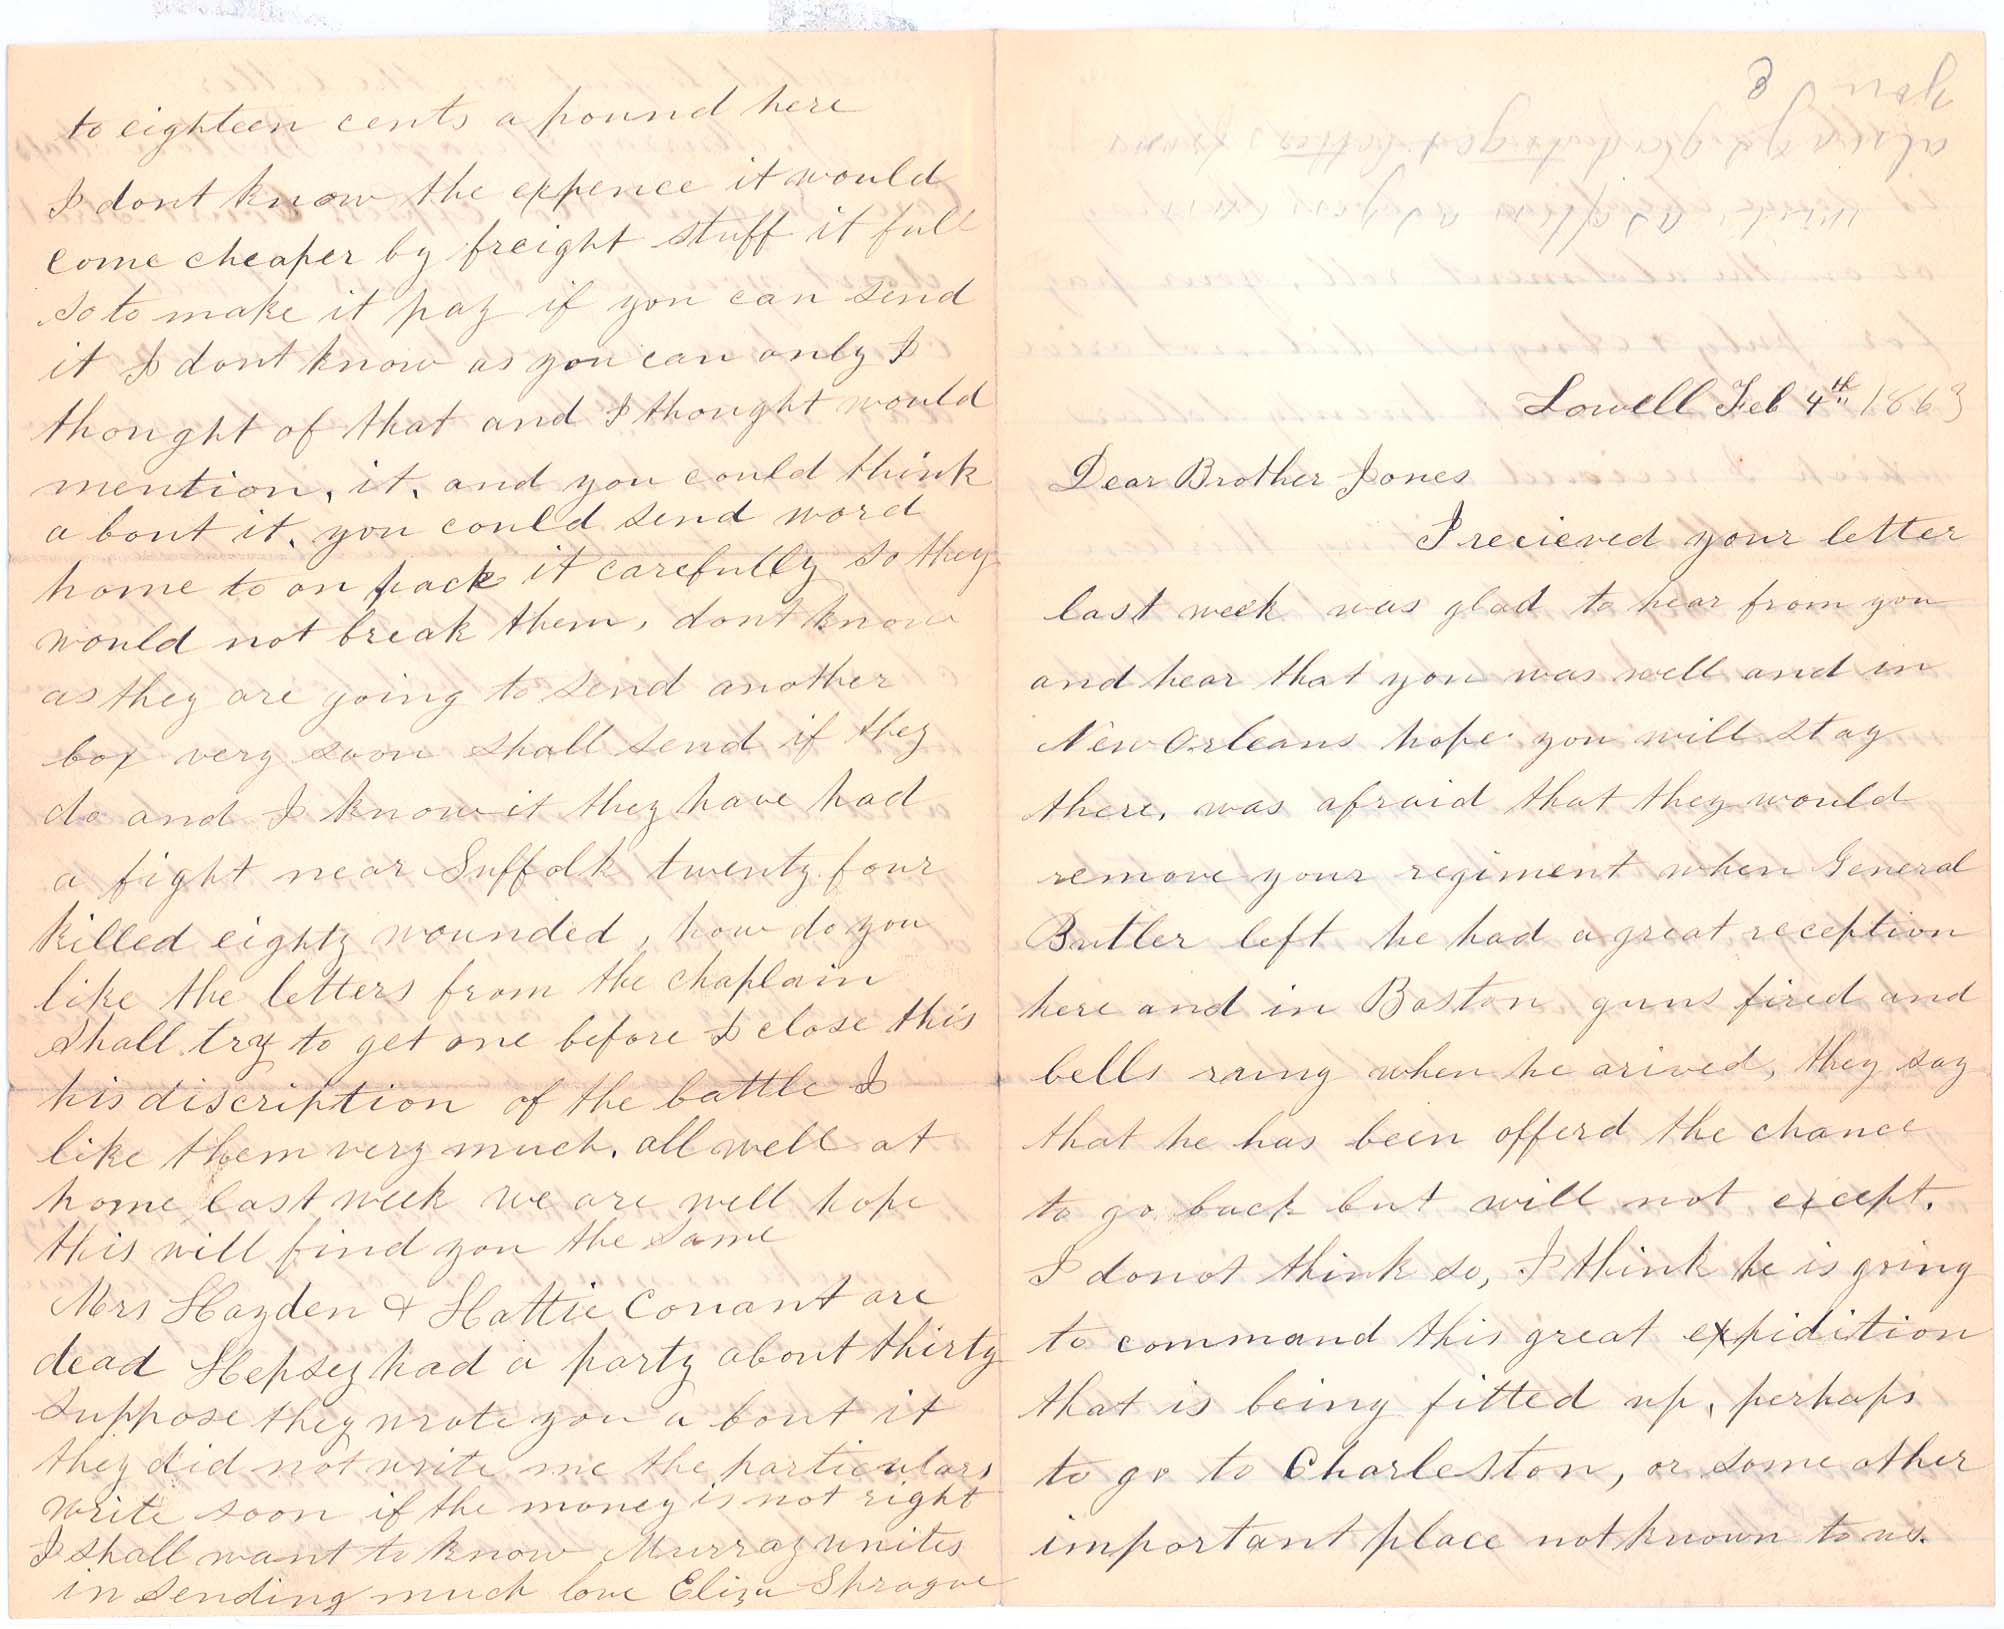 Lowell Feb 4th 1863
Dear Brother Jones
I recieved your letter
last week was glad to hear from you
and hear that you was well and in
New Orleans hope you will stay
there. was afraid that they would
remove your regiment when General
Butler left he had a great reception
here and in Boston guns fired and
bells rang when he arived, they say
that he has been offerd the chance
to go back but will not except.
I donot think so, I think he is going
to command this great expidition
that is being fitted up, perhaps
to go to Charleston, or some other
important place not known to us.
to eighteen cents a pound here
I dont know the expence it would
come cheaper by freight stuff it full
so to make it pay if you can send
it I dont know as you can only I
thought of that and I thought would
mention, it, and you could think
about it, you could send word
home to on pack it carefully so they
would not break them, dont know
as they are going to send another
box very soon shall send if they
do and I know it they have had
a fight near Suffolk twenty four
killed eighty wounded, how do you
like the letters from the chaplain
shall try to get one before I close this
his discription of the battle I
like them very much. all well at
home last week we are well hope
this will find you the same
Mrs Hayden & Hattie Conant are
dead Hepsey had a party about thirty
suppose they wrote you about it
they did not write me the particulars
write soon if the money is not right
I shall want to know Murray unites
in sending much love Eliza Sprague
write as often as you can
always glad to get letters from
you
8